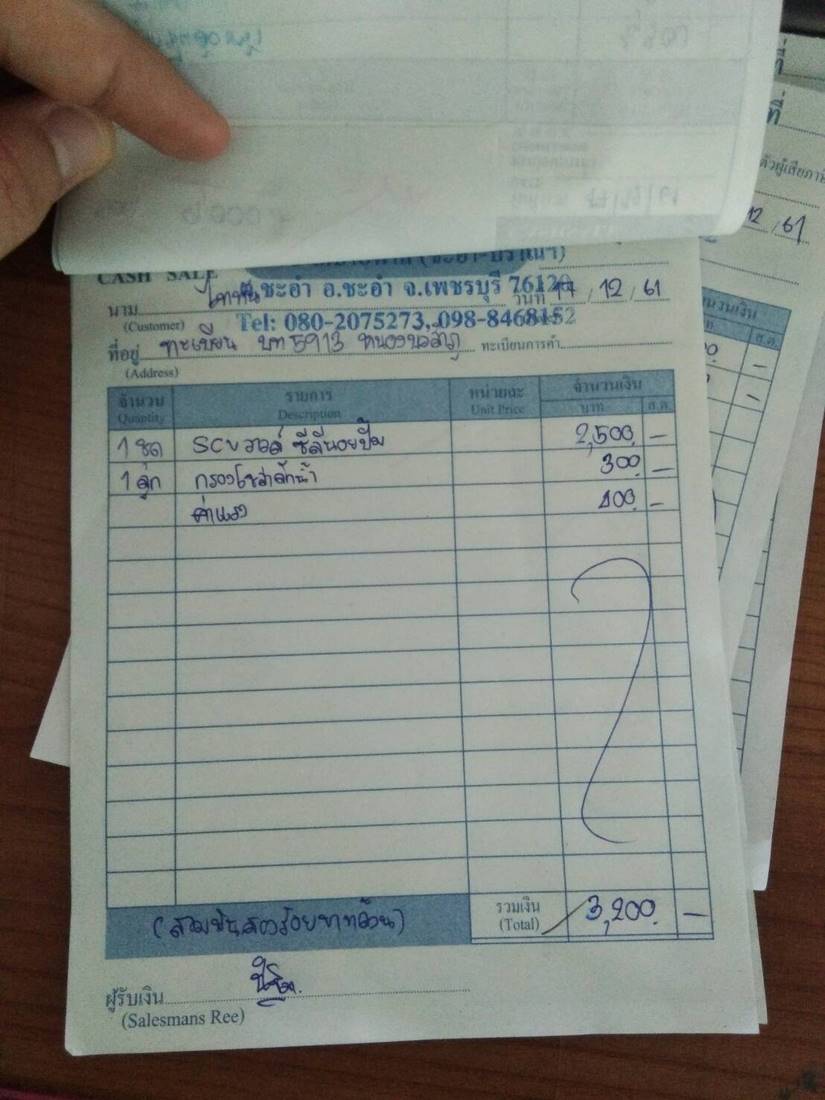 (ชะอำ-ปราณฯ)
CASH SALE
ต.ชะอำ อ.ชะอำ จ.เพชรบุรี 76120
นาม วันที่ 17 / 12 / 61
(Customer) Tel: 080-2075273, 098-8468152
ที่อยู่ ทะเบียน บท 5913 ทะเบียนการค้า
(Address)
จำนวน รายการ หน่วยละ จำนวนเงิน
Quantity Description Unit Price บาท ส.ต.
1 ชุด SCV วาล์ว ซีลีนอยปั๊ม 2,500 -
1 ลูก กรองโซล่าดักน้ำ 300 -
ค่าแรง 400 -
(สามพันสองร้อยบาทถ้วน) รวมเงิน 3,200 -
(Total)
ผู้รับเงิน
(Salesmans Ree)
ที่
ที่
12 / 61
จำนวนเงิน
ส.ต.